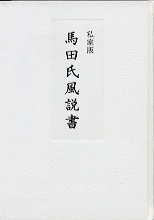 私家版
馬田氏風説書